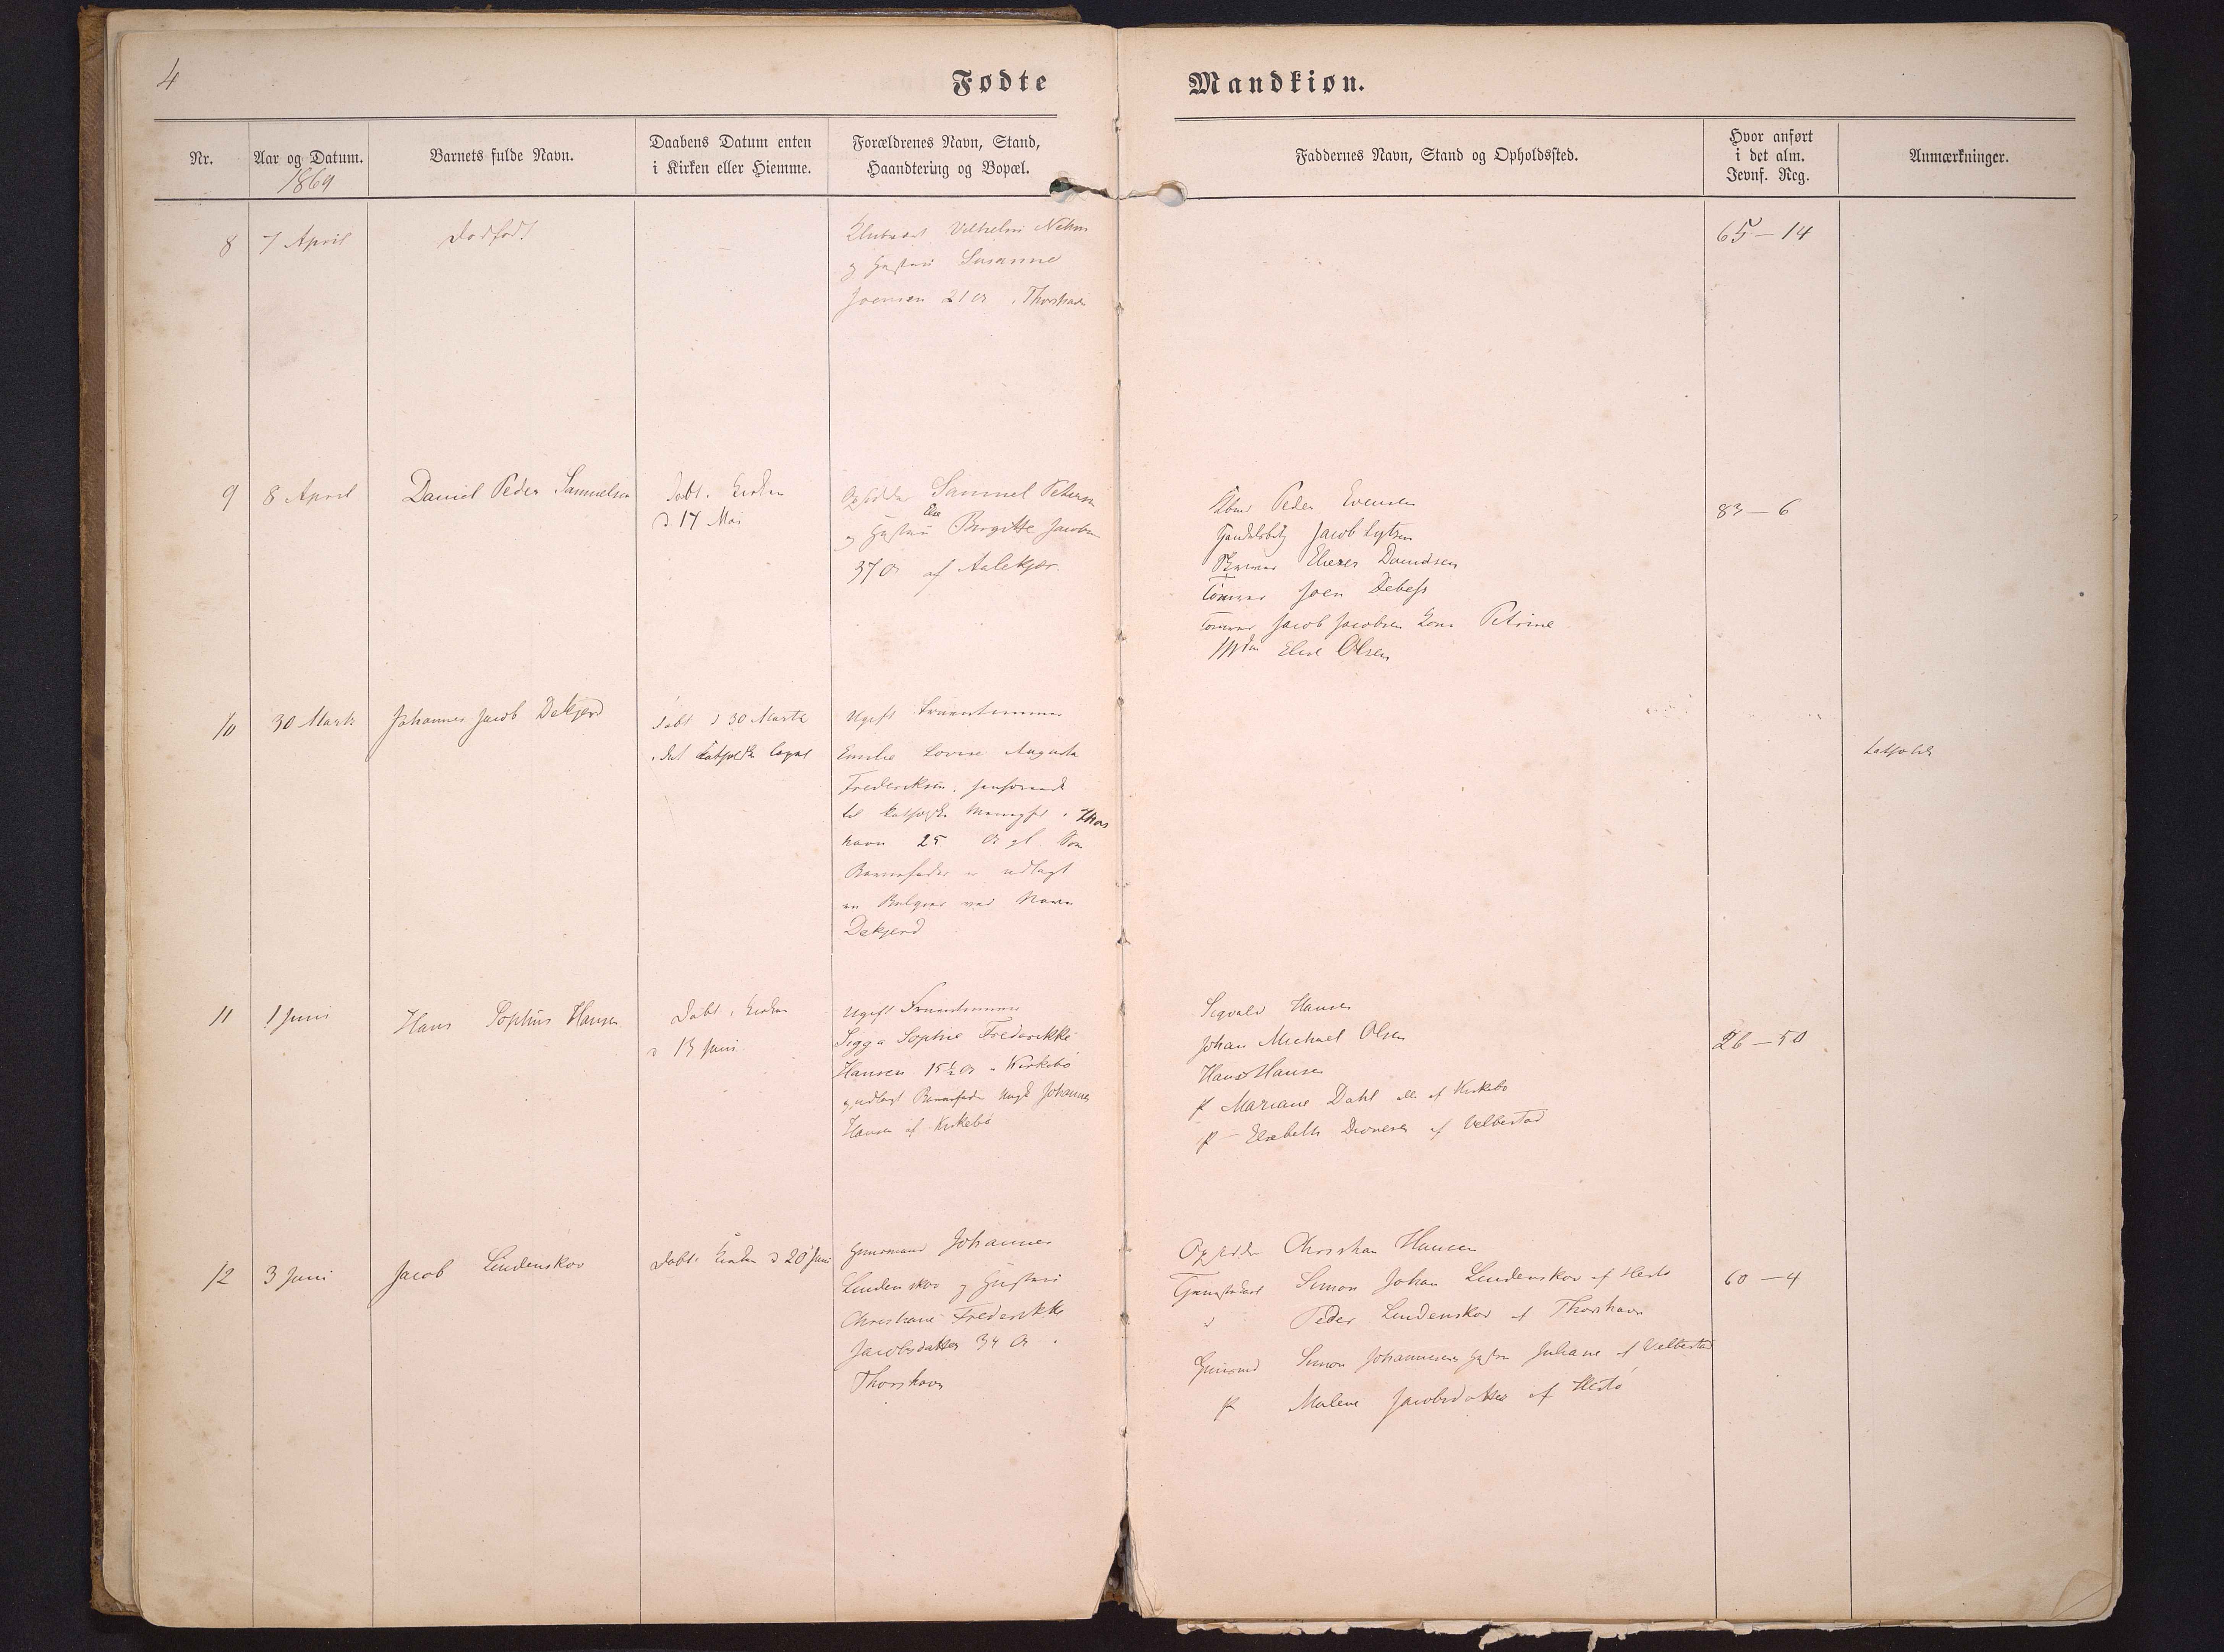 4
Fødte
Mandkiøn.
Nr.
Aar og Datum.
1869
Barnets fulde Navn.
Daabens Datum enten
i Kirken eller Hiemme.
Forældrenes Navn, Stand,
Haandtering og Bopæl.
Faddernes Navn, Stand og Opholdssted.
Hvor anført
i det alm.
Jevnf. Reg.
Anmærkninger.
8
7 April
Dødfødt
Vilhelm
og Hustru Susanne
Joensen 21 Ar i Thorshavn
65-14
9
8 April
Daniel Peder Samuelsen
Døbt i Kirken
d 17 Mai
Opsidder Samuel Petersen
og Hustru Else Birgitte Jacobsen
37 Ar af Aalekjær.
Peder Evensen
Jacob Lytzen
Eliezer Davidsen
Joen Debess
Jacob Jacobsen Kone Petrine
Elise Olsen
83-6
10
30 Marts
Johannes Jacob Dekjerd
døbt d 30 Marts
i det katholske Capel
Ugift Fruentimmer
Emilie Lovise Augusta
Frederiksen, henhørende
til katholske Menighed i Thors
havn 25 Ar gl. Som
Barnefader er udlagt
en Belgier ved Navn
Dekjerd
katholsk
11
1 Juni
Hans Sophus Hansen
Døbt i Kirken
d 13 Juni
Ugift Fruentimmer
Sigga Sophie Frederikke
Hansen 15½ Ar i Kirkebø
og udlagt Barnefader Ungk Johannes
Hansen af Kirkebø
Sigvald Hansen
Johan Michael Olsen
Hans Hansen
P Mariane Dahl alle af Kirkebø
P Elsebeth af Velbestad
26-50
12
3 Juni
Jacob Lindenskov
Døbt i Kirken d 20 Juni
Huusmand Johannes
Lindenskov og Hustru
Christiane Frederikke
Jacobsdatter 34 Ar i
Thorshavn
Opsidder Christian Hansen
Tjenestekarl Simon Johan Lindenskov af Hestø
d Peder Lindenskov af Thorshavn
Huusmd Simon Johannesens Hustru Juliane af Velbestad
P Malene Jacobsdatter af Hestø
60-4